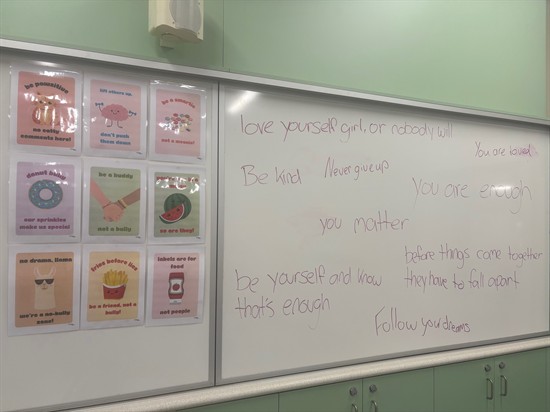 be pawsitive
no catty
comments here!
lift others up
don't push
them down!
be a smartie
not a meanie!
donut judge
our sprinkles
make us special!
be a buddy
not a bully
so are they!
no drama, llama
we're a no-bully
zone!
fries before lies
be a friend, not a
bully!
labels are for
food
not people
love yourself girl, or nobody will
You are loved
Be kind
Never give up
you are enough
you matter
before things come together
they have to fall apart
be yourself and know
that's enough
Follow your dreams